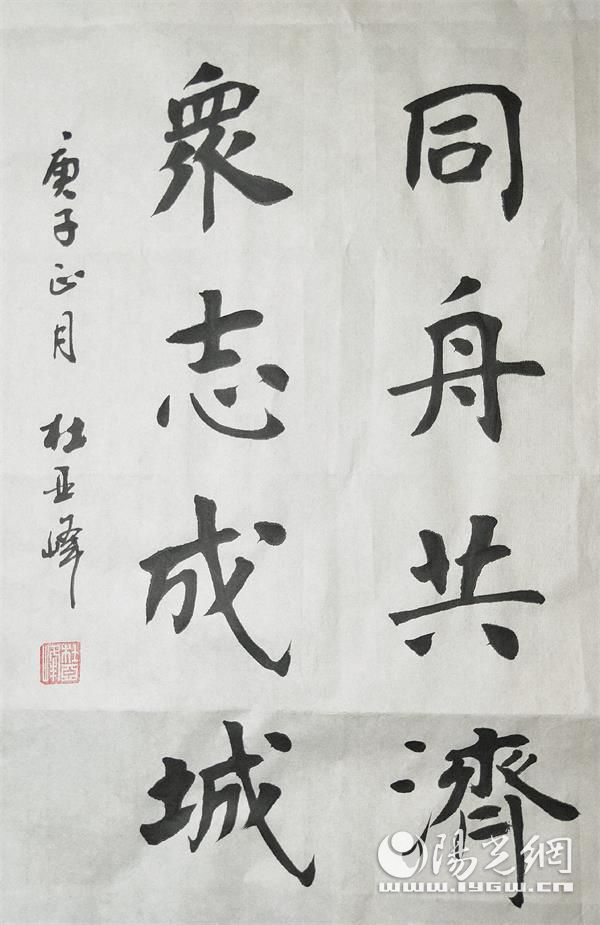 同舟共濟
衆志成城
庚子正月 杜亚峰
陽光網
www.iygw.cn